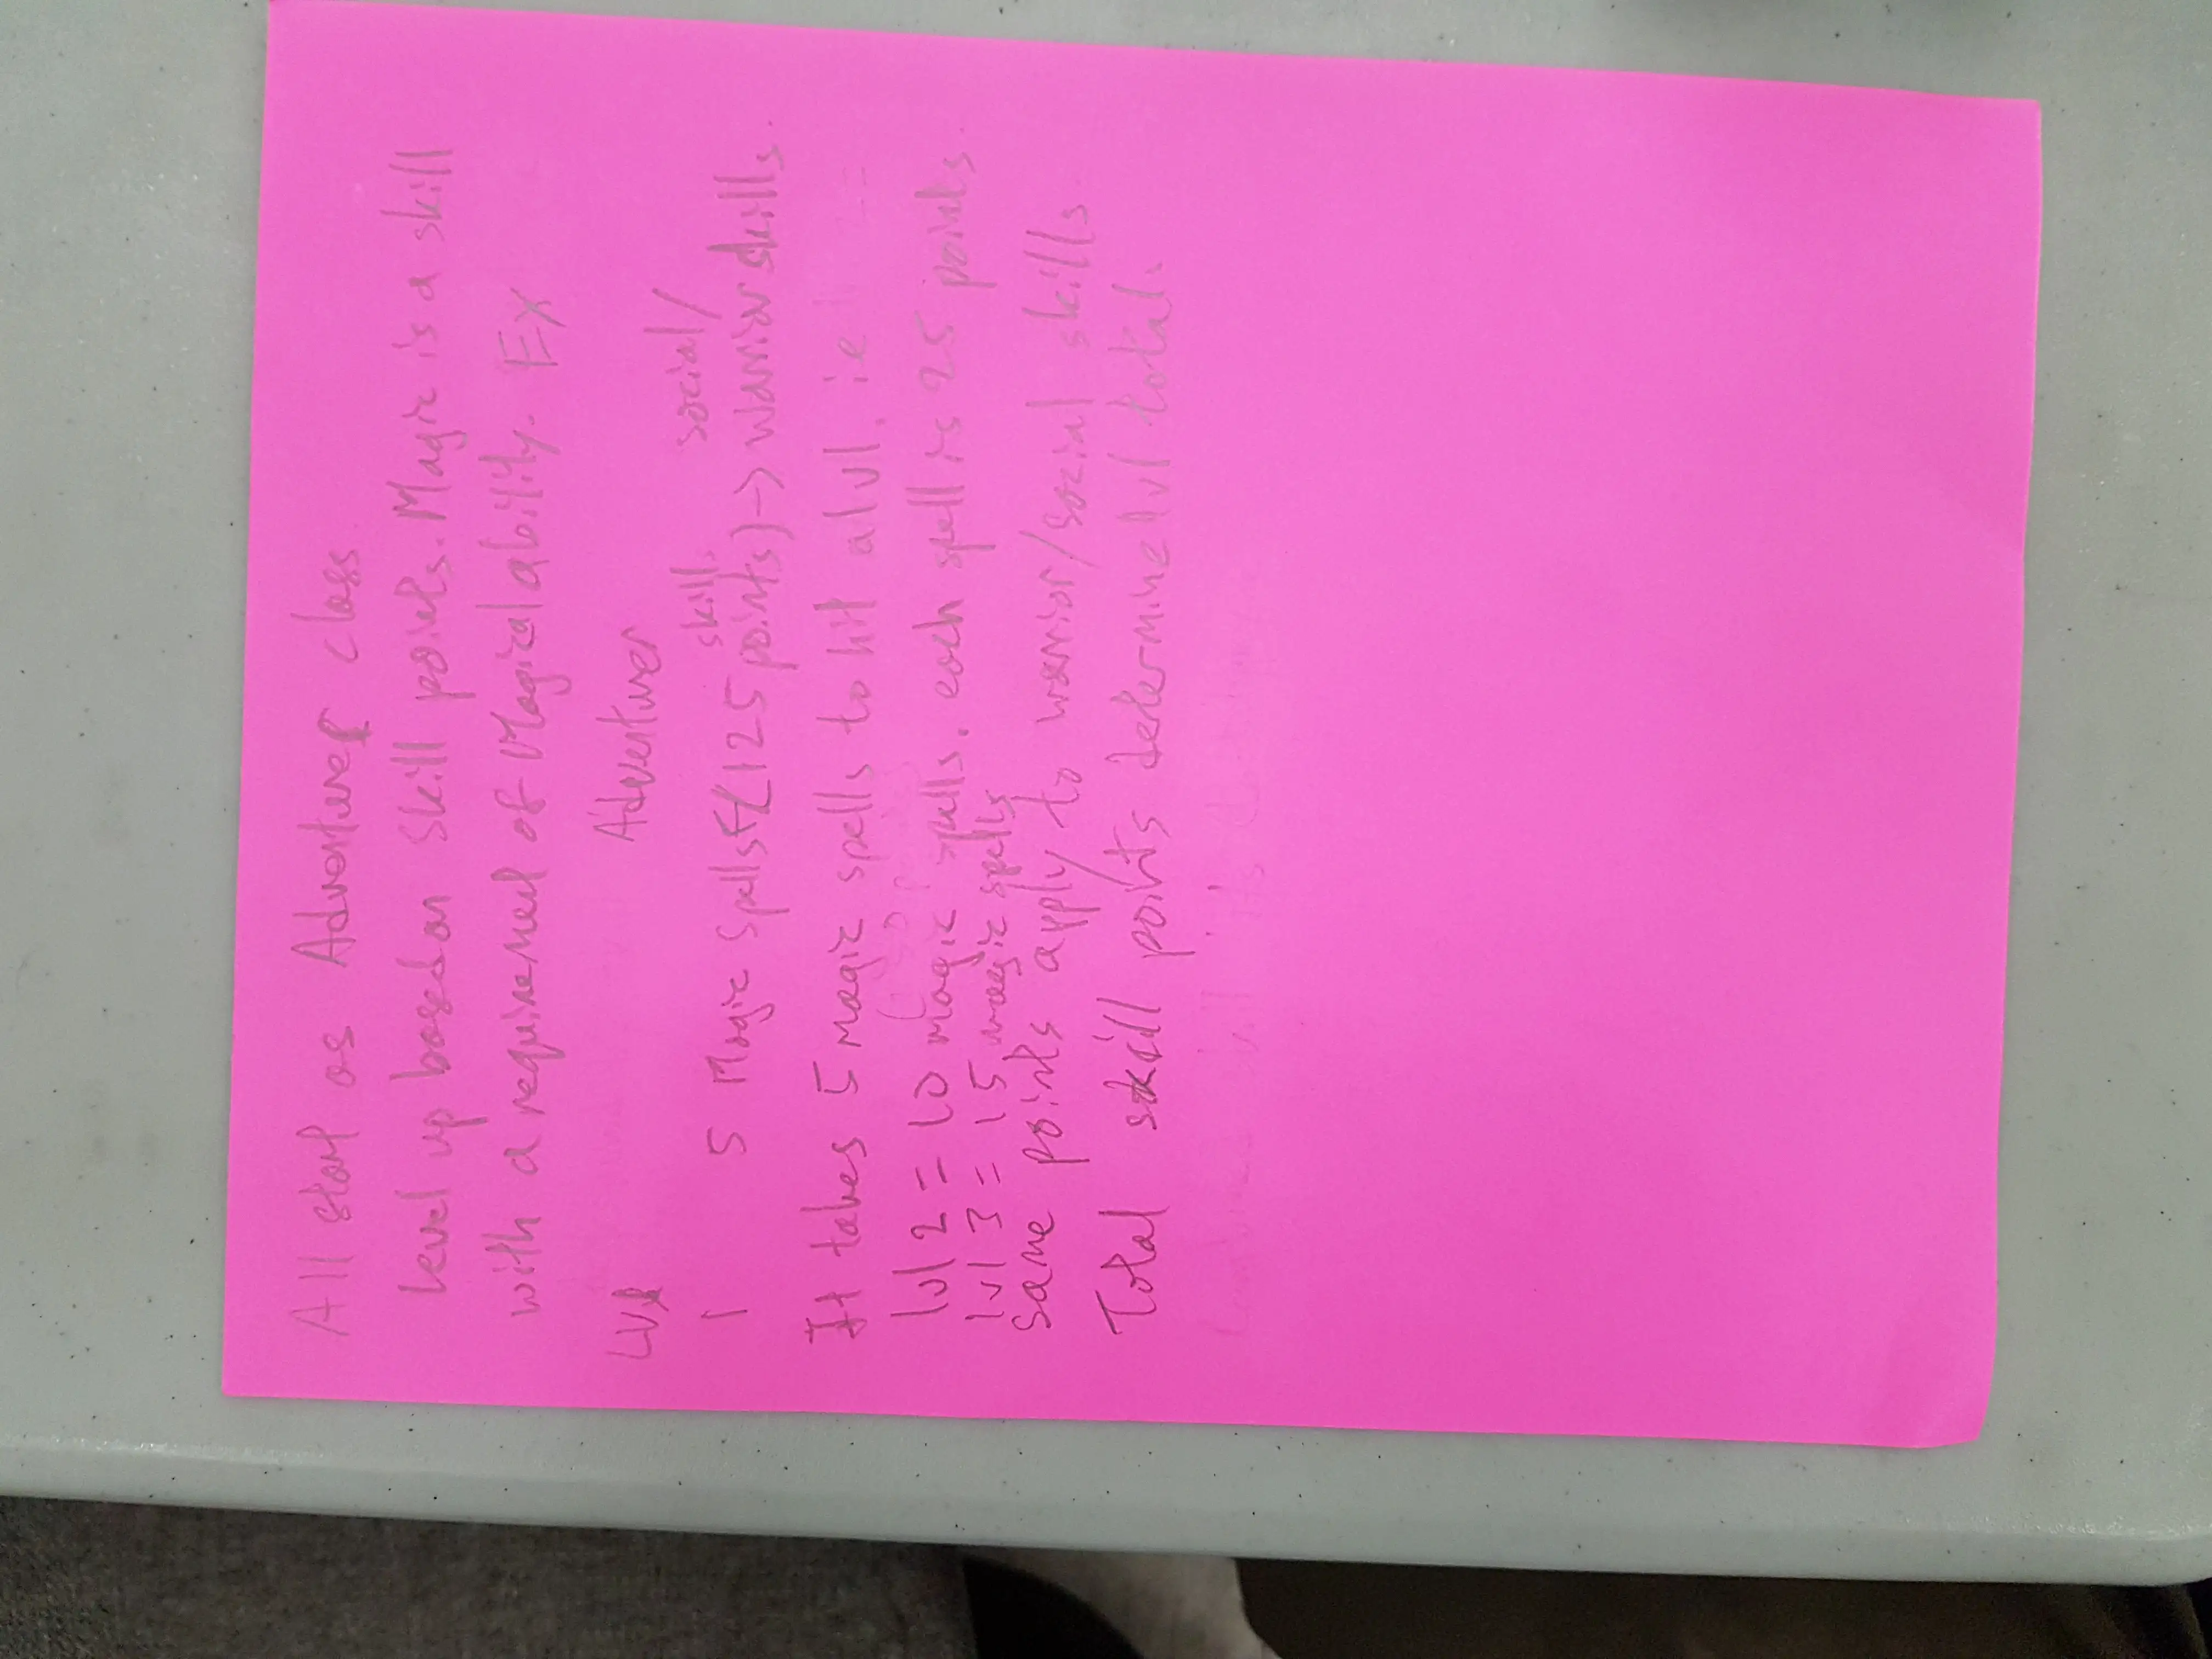 All start as Adventurer class
Level up based on skill points. Magic is a skill
with a requirement of Magical ability. Ex
Lvl Adventurer
1 5 Magic Spells ← (125 skill points) → social/ warrior skills.
It takes 5 magic spells to hit a lvl. ie
lvl 2 = 10 magic spells. each spell is 25 points
lvl 3 = 15 magic spells
Same points apply to warrior/social skills.
Total skill points determine lvl total.